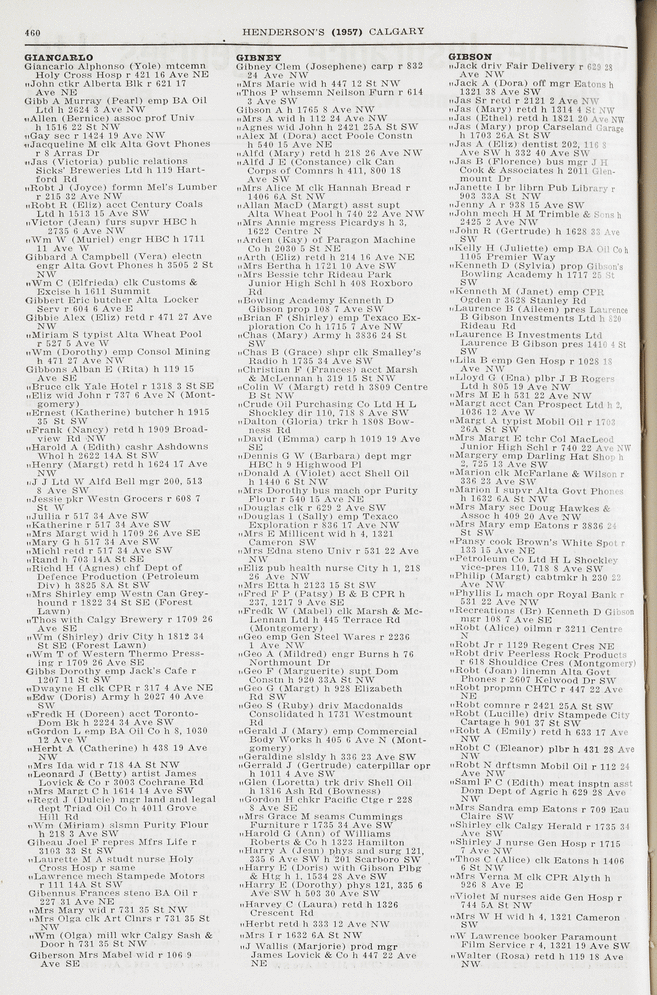 460
HENDERSON'S (1957) CALGARY
GIANCARLO
Giancarlo Alphonso (Yole) mtcemn
Holy Cross Hosp r 421 16 Ave NE
„John ctkr Alberta Blk r 621 17
Ave NE
Gibb A Murray (Pearl) emp BA Oil
Ltd h 2624 3 Ave NW
„Allen (Bernice) assoc prof Univ
h 1516 22 St NW
„Gay sec r 1424 19 Ave NW
„Jacqueline M clk Alta Govt Phones
r 8 Arras Dr
„Jas (Victoria) public relations
Sicks' Breweries Ltd h 119 Hart-
ford Rd
„Robt J (Joyce) formn Mel's Lumber
r 215 32 Ave NW
„Robt R (Eliz) acct Century Coals
Ltd h 1513 15 Ave SW
„Victor (Jean) furs supvr HBC h
2735 6 Ave NW
„Wm W (Muriel) engr HBC h 1711
11 Ave W
Gibbard A Campbell (Vera) electn
engr Alta Govt Phones h 3505 2 St
NW
„Wm C (Elfrieda) clk Customs &
Excise h 1611 Summit
Gibbert Eric butcher Alta Locker
Serv r 604 6 Ave E
Gibbie Alex (Eliz) retd r 471 27 Ave
NW
„Miriam S typist Alta Wheat Pool
r 527 5 Ave W
„Wm (Dorothy) emp Consol Mining
h 471 27 Ave NW
Gibbons Alban E (Rita) h 119 15
Ave SE
„Bruce clk Yale Hotel r 1318 3 St SE
„Eliz wid John r 737 6 Ave N (Mont-
gomery)
„Ernest (Katherine) butcher h 1915
35 St SW
„Frank (Nancy) retd h 1909 Broad-
view Rd NW
„Harold A (Edith) cashr Ashdowns
Whol h 2622 14A St SW
„Henry (Margt) retd h 1624 17 Ave
NW
„J J Ltd W Alfd Bell mgr 200, 513
8 Ave SW
„Jessie pkr Westn Grocers r 608 7
St W
„Jullia r 517 34 Ave SW
„Katherine r 517 34 Ave SW
„Mrs Margt wid h 1709 26 Ave SE
„Mary G h 517 34 Ave SW
„Michl retd r 517 34 Ave SW
„Rand h 703 14A St SE
„Richd H (Agnes) chf Dept of
Defence Production (Petroleum
Div) h 3825 8A St SW
„Mrs Shirley emp Westn Can Grey-
hound r 1822 34 St SE (Forest
Lawn)
„Thos with Calgry Brewery r 1709 26
Ave SE
„Wm (Shirley) driv City h 1812 34
St SE (Forest Lawn)
„Wm T of Western Thermo Press-
ing r 1709 26 Ave SE
Gibbs Dorothy emp Jack's Cafe r
1207 11 St SW
„Dwayne H clk CPR r 317 4 Ave NE
„Edw (Doris) Army h 2027 40 Ave
SW
„Fredk H (Doreen) acct Toronto-
Dom Bk h 2224 34 Ave SW
„Gordon L emp BA Oil Co h 8, 1030
12 Ave W
„Herbt A (Catherine) h 438 19 Ave
NW
„Mrs Ida wid r 718 4A St NW
„Leonard J (Betty) artist James
Lovick & Co r 3003 Cochrane Rd
„Mrs Margt C h 1614 14 Ave SW
„Regd J (Dulcie) mgr land and legal
dept Triad Oil Co h 4011 Grove
Hill Rd
„Wm (Miriam) slsmn Purity Flour
h 218 3 Ave SW
Gibeau Joel F repres Mfrs Life r
3103 33 St SW
„Laurette M A studt nurse Holy
Cross Hosp r same
„Lawrence mech Stampede Motors
r 111 14A St SW
Gibennus Frances steno BA Oil r
227 31 Ave NE
„Mrs Mary wid r 731 35 St NW
„Mrs Olga clk Art Clnrs r 731 35 St
NW
„Wm (Olga) mill wkr Calgy Sash &
Door h 731 35 St NW
Giberson Mrs Mabel wid r 106 9
Ave SE
GIBNEY
Gibney Clem (Josephene) carp r 832
24 Ave NW
„Mrs Marie wid h 447 12 St NW
„Thos P whsemn Neilson Furn r 614
3 Ave SW
Gibson A h 1765 8 Ave NW
„Mrs A wid h 112 24 Ave NW
„Agnes wid John h 2421 25A St SW
„Alex M (Dora) acct Poole Constn
h 540 15 Ave NE
„Alfd (Mary) retd h 218 26 Ave NW
„Alfd J E (Constance) clk Can
Corps of Comnrs h 411, 800 18
Ave SW
„Mrs Alice M clk Hannah Bread r
1406 6A St NW
„Allan MacD (Margt) asst supt
Alta Wheat Pool h 740 22 Ave NW
„Mrs Annie mgress Picardys h 3,
1622 Centre N
„Arden (Kay) of Paragon Machine
Co h 2030 5 St NE
„Arth (Eliz) retd h 214 16 Ave NE
„Mrs Bertha h 1721 10 Ave SW
„Mrs Bessie tchr Rideau Park
Junior High Schl h 408 Roxboro
Rd
„Bowling Academy Kenneth D
Gibson prop 108 7 Ave SW
„Brian F (Shirley) emp Texaco Ex-
ploration Co h 1715 7 Ave NW
„Chas (Mary) Army h 3836 24 St
SW
„Chas B (Grace) shpr clk Smalley's
Radio h 1735 34 Ave SW
„Christian F (Frances) acct Marsh
& McLennan h 319 15 St NW
„Colin W (Margt) retd h 3809 Centre
B St NW
„Crude Oil Purchasing Co Ltd H L
Shockley dir 110, 718 8 Ave SW
„Dalton (Gloria) trkr h 1808 Bow-
ness Rd
„David (Emma) carp h 1019 19 Ave
SE
„Dennis G W (Barbara) dept mgr
HBC h 9 Highwood Pl
„Donald A (Violet) acct Shell Oil
h 1440 6 St NW
„Mrs Dorothy bus mach opr Purity
Flour r 540 15 Ave NE
„Douglas clk r 629 2 Ave SW
„Douglas I (Sally) emp Texaco
Exploration r 836 17 Ave NW
„Mrs E Millicent wid h 4, 1321
Cameron SW
„Mrs Edna steno Univ r 531 22 Ave
NW
„Eliz pub health nurse City h 1, 218
26 Ave NW
„Mrs Etta h 2123 15 St SW
„Fred F P (Patsy) B & B CPR h
237, 1217 9 Ave SE
„Fredk W (Mabel) clk Marsh & Mc-
Lennan Ltd h 445 Terrace Rd
(Montgomery)
„Geo emp Gen Steel Wares r 2236
1 Ave NW
„Geo A (Mildred) engr Burns h 76
Northmount Dr
„Geo F (Marguerite) supt Dom
Constn h 920 33A St NW
„Geo G (Margt) h 928 Elizabeth
Rd SW
„Geo S (Ruby) driv Macdonalds
Consolidated h 1731 Westmount
Rd
„Gerald J (Mary) emp Commercial
Body Works h 405 6 Ave N (Mont-
gomery)
„Geraldine slsldy h 336 23 Ave SW
„Gerrald J (Gertrude) caterpillar opr
h 1011 4 Ave SW
„Glen (Loretta) trk driv Shell Oil
h 1816 Ash Rd (Bowness)
„Gordon H chkr Pacific Ctge r 228
8 Ave SE
„Mrs Grace M seams Cummings
Furniture r 1735 34 Ave SW
„Harold G (Ann) of Williams
Roberts & Co h 1323 Hamilton
„Harry A (Jean) phys and surg 121,
335 6 Ave SW h 201 Scarboro SW
„Harry E (Doris) with Gibson Plbg
& Htg h 1, 1534 28 Ave SW
„Harry E (Dorothy) phys 121, 335 6
Ave SW h 503 30 Ave SW
„Harvey C (Laura) retd h 1326
Crescent Rd
„Herbt retd h 333 12 Ave NW
„Mrs I r 1632 6A St NW
„J Wallis (Marjorie) prod mgr
James Lovick & Co h 447 22 Ave
NE
GIBSON
„Jack driv Fair Delivery r 629 28
Ave NW
„Jack A (Dora) off mgr Eatons h
1321 38 Ave SW
„Jas Sr retd r 2121 2 Ave NW
„Jas (Mary) retd h 1314 4 St NW
„Jas (Ethel) retd h 1821 20 Ave NW
„Jas (Mary) prop Carseland Garage
h 1703 26A St SW
„Jas A (Eliz) dentist 202, 116 8
Ave SW h 332 40 Ave SW
„Jas B (Florence) bus mgr J H
Cook & Associates h 2011 Glen-
mount Dr
„Janette I br librn Pub Library r
903 33A St NW
„Jenny A r 938 15 Ave SW
„John mech H M Trimble & Sons h
2425 2 Ave NW
„John R (Gertrude) h 1628 33 Ave
SW
„Kelly H (Juliette) emp BA Oil Co h
1105 Premier Way
„Kenneth D (Sylvia) prop Gibson's
Bowling Academy h 1717 25 St
SW
„Kenneth M (Janet) emp CPR
Ogden r 3628 Stanley Rd
„Laurence B (Aileen) pres Laurence
B Gibson Investments Ltd h 820
Rideau Rd
„Laurence B Investments Ltd
Laurence B Gibson pres 1410 4 St
SW
„Lila B emp Gen Hosp r 1028 18
Ave NW
„Lloyd G (Ena) plbr J B Rogers
Ltd h 805 19 Ave NW
„Mrs M E h 531 22 Ave NW
„Margt acct Can Prospect Ltd h 2,
1036 12 Ave W
„Margt A typist Mobil Oil r 1703
26A St SW
„Mrs Margt E tchr Col MacLeod
Junior High Schl r 740 22 Ave NW
„Margery emp Darling Hat Shop h
2, 725 13 Ave SW
„Marion clk McFarlane & Wilson r
336 23 Ave SW
„Marion I supvr Alta Govt Phones
h 1632 6A St NW
„Mrs Mary sec Doug Hawkes &
Assoc h 409 20 Ave NW
„Mrs Mary emp Eatons r 3836 24
St SW
„Pansy cook Brown's White Spot r
133 15 Ave NE
„Petroleum Co Ltd H L Shockley
vice-pres 110, 718 8 Ave SW
„Philip (Margt) cabtmkr h 230 22
Ave NW
„Phyllis L mach opr Royal Bank r
531 22 Ave NW
„Recreations (Br) Kenneth D Gibson
mgr 108 7 Ave SE
„Robt (Alice) oilmn r 3211 Centre
N
„Robt Jr r 1129 Regent Cres NE
„Robt driv Peerless Rock Products
r 618 Shouldice Cres (Montgomery)
„Robt (Joan) linemn Alta Govt
Phones r 2607 Kelwood Dr SW
„Robt propmn CHTC r 447 22 Ave
NE
„Robt comnre r 2421 25A St SW
„Robt (Lucille) driv Stampede City
Cartage h 901 37 St SW
„Robt A (Emily) retd h 633 17 Ave
NW
„Robt C (Eleanor) plbr h 431 28 Ave
NW
„Robt N drftsmn Mobil Oil r 112 24
Ave NW
„Saml F C (Edith) meat insptn asst
Dom Dept of Agric h 629 28 Ave
NW
„Mrs Sandra emp Eatons r 709 Eau
Claire SW
„Shirley clk Calgy Herald r 1735 34
Ave SW
„Shirley J nurse Gen Hosp r 1715
7 Ave NW
„Thos C (Alice) clk Eatons h 1406
6 St NW
„Mrs Verna M clk CPR Alyth h
926 8 Ave E
„Violet M nurses aide Gen Hosp r
744 5A St NW
„Mrs W H wid h 4, 1321 Cameron
SW
„W Lawrence booker Paramount
Film Service r 4, 1321 19 Ave SW
„Walter (Rosa) retd h 119 18 Ave
NW